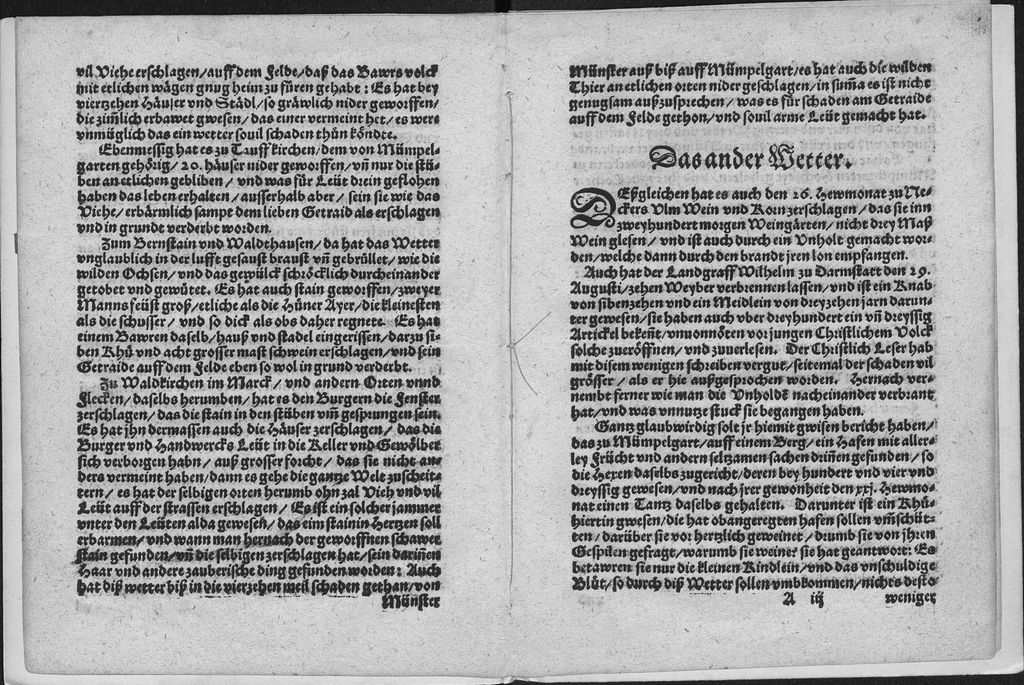 vil Viehe erschlagen/auff dem Felde/daß das Bawrs volck
mit etlichen wägen gnug heim zu füren gehabt: Es hat bey
viertzehen Häuser vnd Städl/so gräwlich nider geworffen/
die zim̃lich erbawet gwesen/das einer vermeint het/es were
vnmüglich das ein wetter souil schaden thůn köndte.
Ebenmessig hat es zu Tauffkirchen/dem von Mümpel-
garten gehörig/20. häuser nider geworffen/vñ nur die stü-
ben an etlichen gebliben/vnd was für Leüt drein geflohen
haben das leben erhalten/ausserhalb aber/sein sie wie das
Viehe/erbärmlich sampt dem lieben Getraid als erschlagen
vnd in grundt verderbt worden.
Zum Bernstain vnd Waldthausen/da hat das Wetter
vnglaublich in der lufft gesaust braust vñ gebrüllet/wie die
wilden Ochsen/vnd das gewülck schröcklich durcheinander
getobet vnd gewütet. Es hat auch stain geworffen/zweyer
Manns feüst groß/etliche als die Hüner Ayer/die kleinesten
als die schusser/vnd so dick als obs daher regnete. Es hat
einem Bawren daselb/hauß vnd stadel eingerissen/darzu si-
ben Khü vnd acht grosser mast schwein erschlagen/vnd sein
Getraide auff dem Felde eben so wol in grund verderbt.
Zu Waldkirchen im Marck/vnd andern Orten vnnd
Flecken/daselbs herumben/hat es den Burgern die Fenster
zerschlagen/das die stain in den stüben vm̃ gesprungen sein.
Es hat jhn dermassen auch die Häuser zerschlagen/das die
Burger vnd Handwercks Leüt in die Keller vnd Gewölber
sich verborgen habn/auß grosser forcht/das sie nicht an-
ders vermeint haben/dann es gehe die gantze Welt zuscheit-
tern/es hat der selbigen orten herumb ohn zal Vieh vnd vil
Leüt auff der strassen erschlagen/Es ist ein solcher jammer
vnter den Leüten alda gewesen/das eim stainin Hertzen soll
erbarmen/vnd wann man hernach der geworffnen schawer
stain gefunden/vñ die selbigen zerschlagen hat/sein dariñen
Haar vnd andere zauberische ding gefunden worden: Auch
hat diß wetter biß in die viertzehen meil schaden gethan/von
Münster
Münster auß biß auff Mümpelgart/es hat auch die wilden
Thier an etlichen orten nider geschlagen/in sum̃a es ist nicht
genugsam außzusprechen/was es für schaden am Getraide
auff dem Felde gethon/vnd souil arme Leüt gemacht hat.
Das ander Wetter.
DEßgleichen hat es auch den 26. Hewmonat zu Ne-
ckers Vlm Wein vnd Korn zerschlagen/das sie inn
zweyhundert morgen Weingärten/nicht drey Maß
Wein glesen/vnd ist auch durch ein Vnholt gemacht wor-
den/welche dann durch den brandt jren lon empfangen.
Auch hat der Landgraff Wilhelm zu Darmstatt den 29.
Augusti/zehen Weyber verbrennen lassen/vnd ist ein Knab
von sibenzehen vnd ein Meidlein von dreyzehen jarn darun-
ter gewesen/sie haben auch vber dreyhundert ein vñ dreyssig
Artickel bekeñt/vnuonnöten vor jungen Christlichem Volck
solche zueröffnen/vnd zuuerlesen. Der Christlich Leser hab
mit disem wenigen schreiben vergut/seitemal der schaden vil
grösser/als er hie außgesprochen worden. Hernach ver-
nembt ferner wie man die Vnholdē nacheinander verbrant
hat/vnd was vnnutze stuck sie begangen haben.
Gantz glaubwirdig solt jr hiemit gwisen bericht haben/
das zu Mümpelgart/auff einem Berg/ein Hafen mit aller-
ley Frücht vnd andern seltzamen sachen driñen gefunden/so
die Hexen daselbs zugericht/deren bey hundert vnd vier vnd
dreyssig gewesen/vnd nach jrer gewonheit den xxj. Hewmo-
nat einen Tantz daselbs gehalten. Darunter ist ein Khü-
hiertin gwesen/die hat obangeregten hafen sollen vm̃schüt-
ten/darüber sie vor hertzlich geweinet/drumb sie von jhren
Gespilen gefragt/warumb sie weine? sie hat geantwort: Es
betawren sie nur die kleinen Kindlein/vnd das vnschuldige
Blůt/so durch diß Wetter sollen vmbkommen/nichts desto
A iij weniger